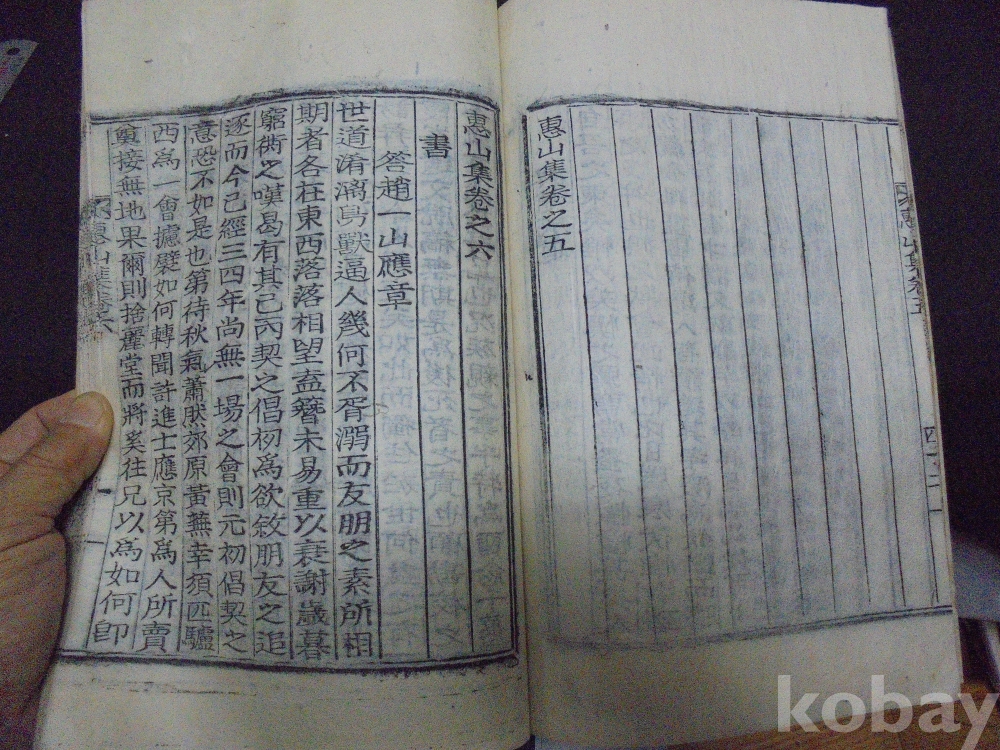 惠山集卷之五
惠山集卷之六
書
答趙一山應章
世道淆漓鳥獸逼人幾何不胥溺而友朋之素所相
期者各在東西落落相望盍簪未易重以衰謝歲暮
窮衖之嘆曷有其已丙契之倡初為欲敘朋友之追
逐而今已經三四年尚無一場之會則元初倡契之
意恐不如是也第待秋氣蕭然郊原黃蕪幸須匹驢
西爲一會攄襞如何轉聞許進士應京第爲人所賣
接無地果爾則捨麗堂而將奚往兄以爲如何卽
惠山集卷五
惠山集卷六
kobay